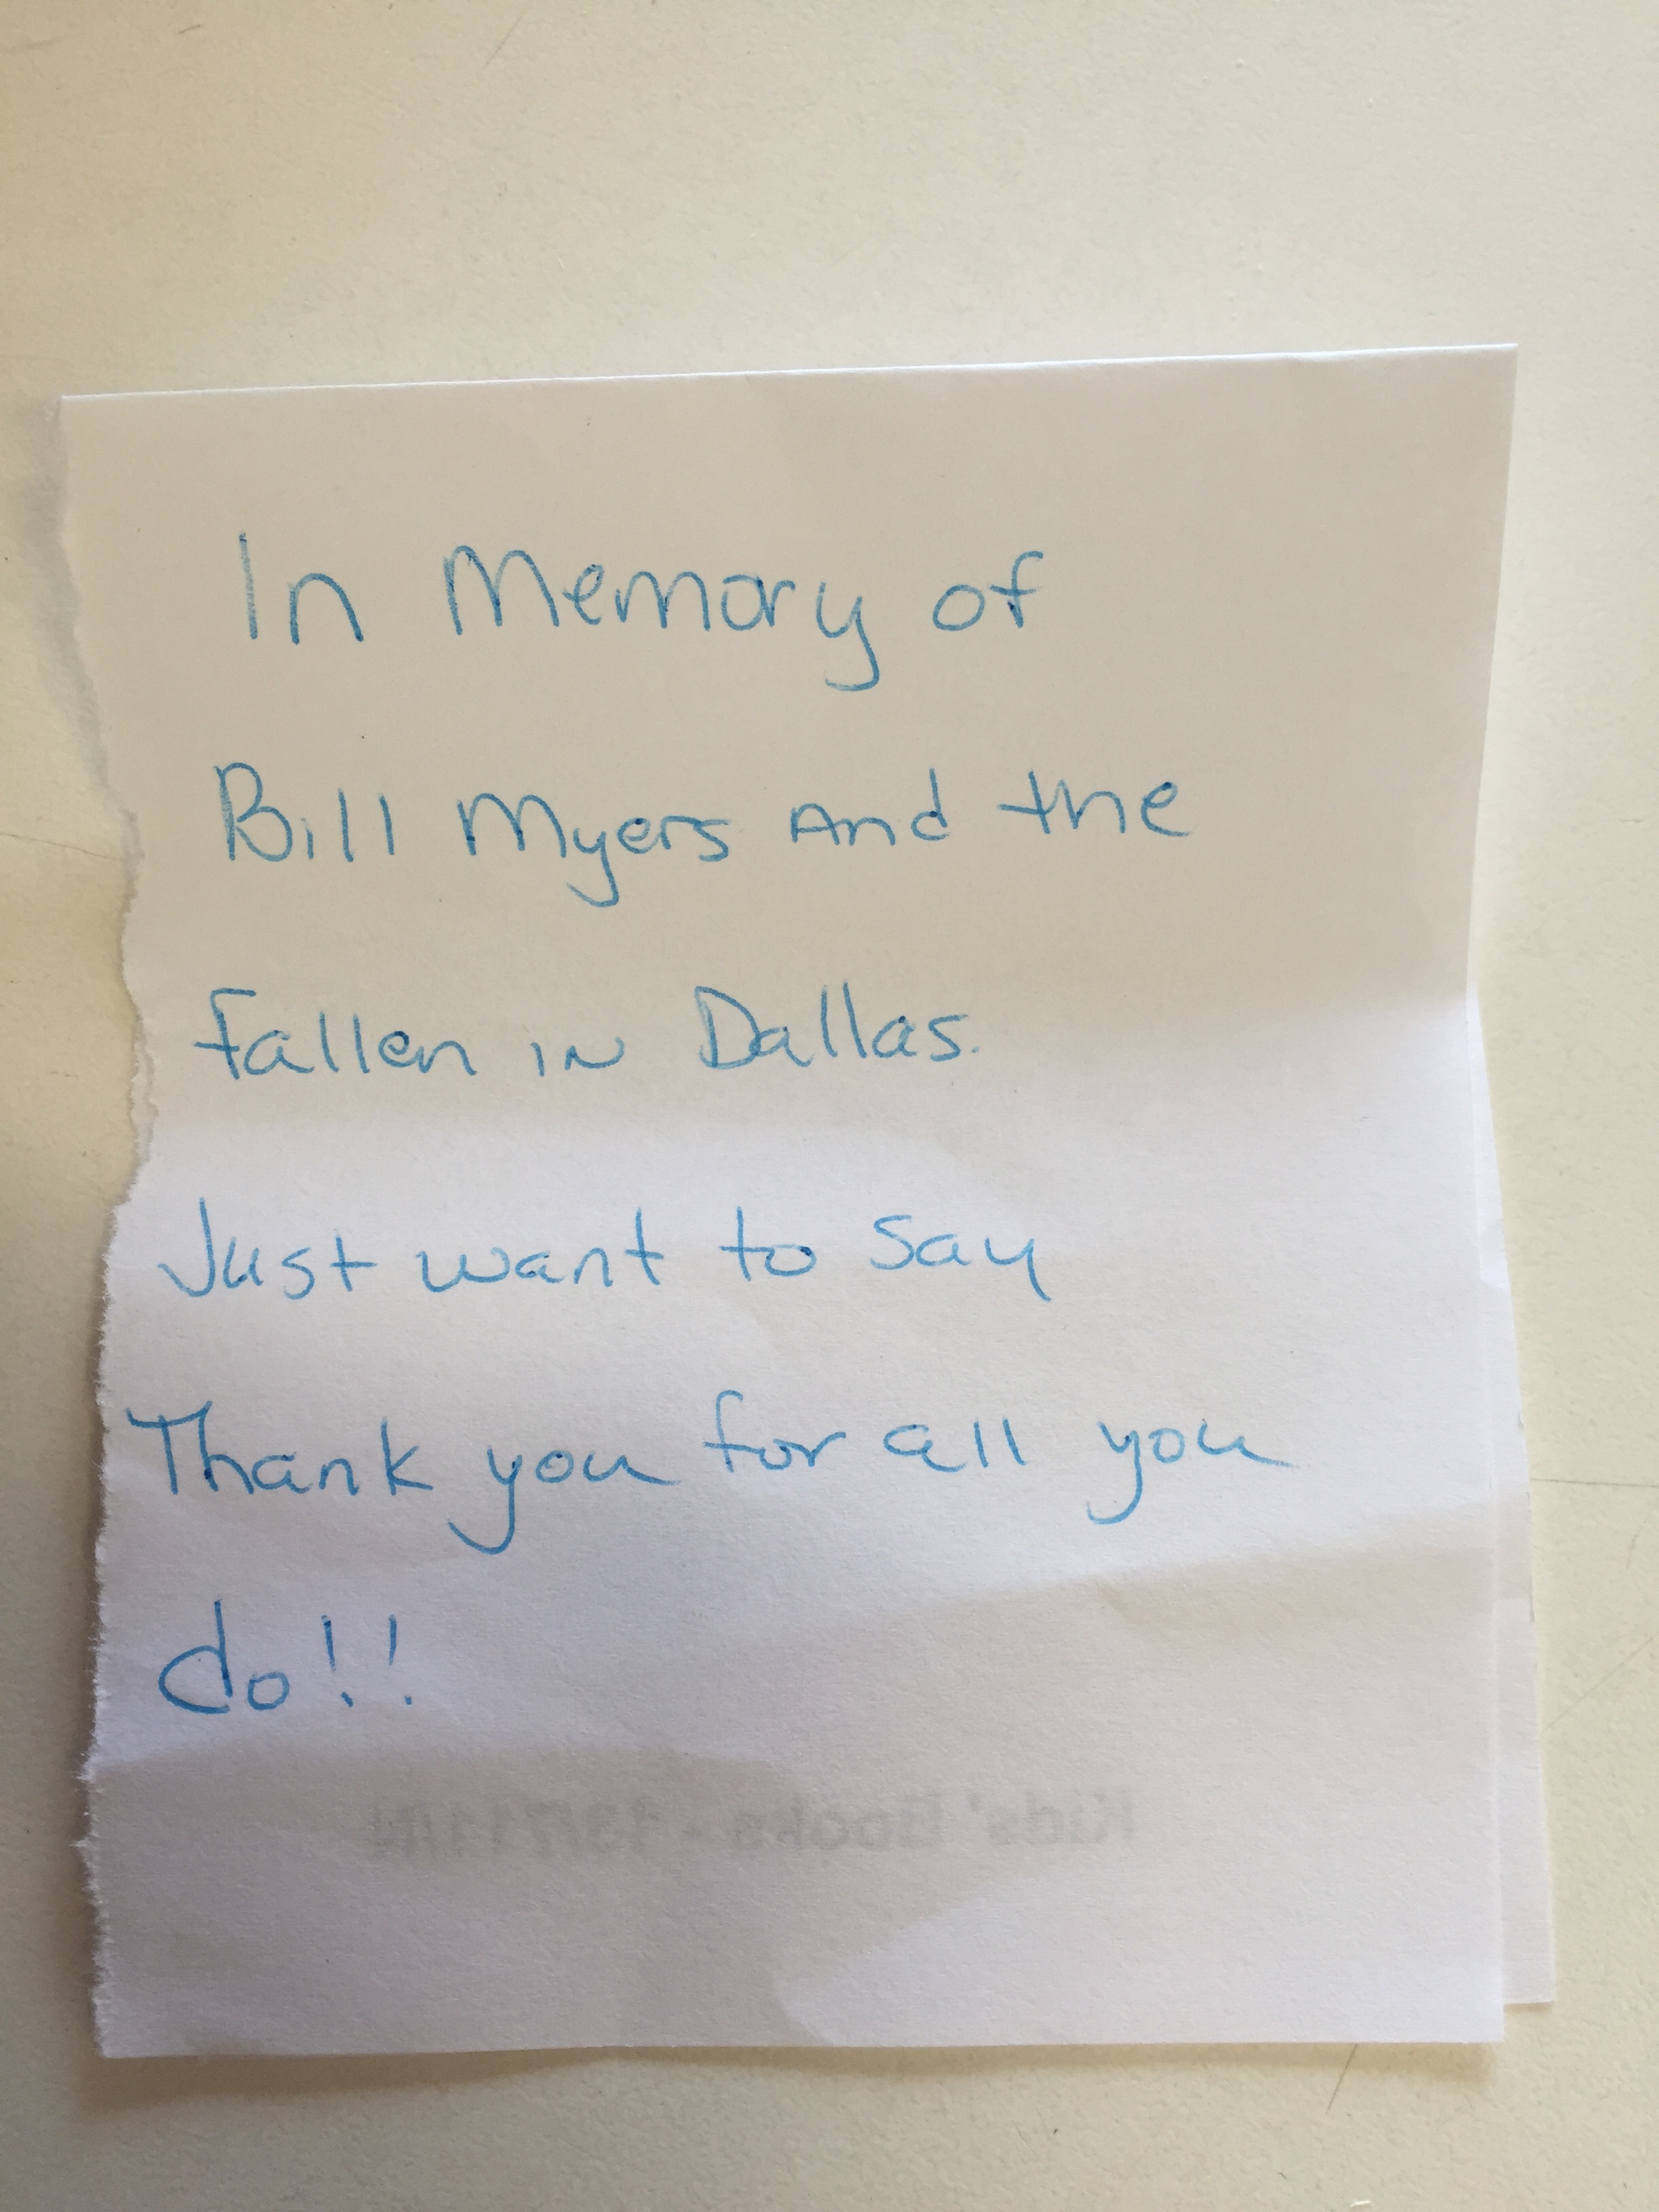 In Memory of
Bill Myers And the
fallen in Dallas.
Just want to say
Thank you for all you
do!!